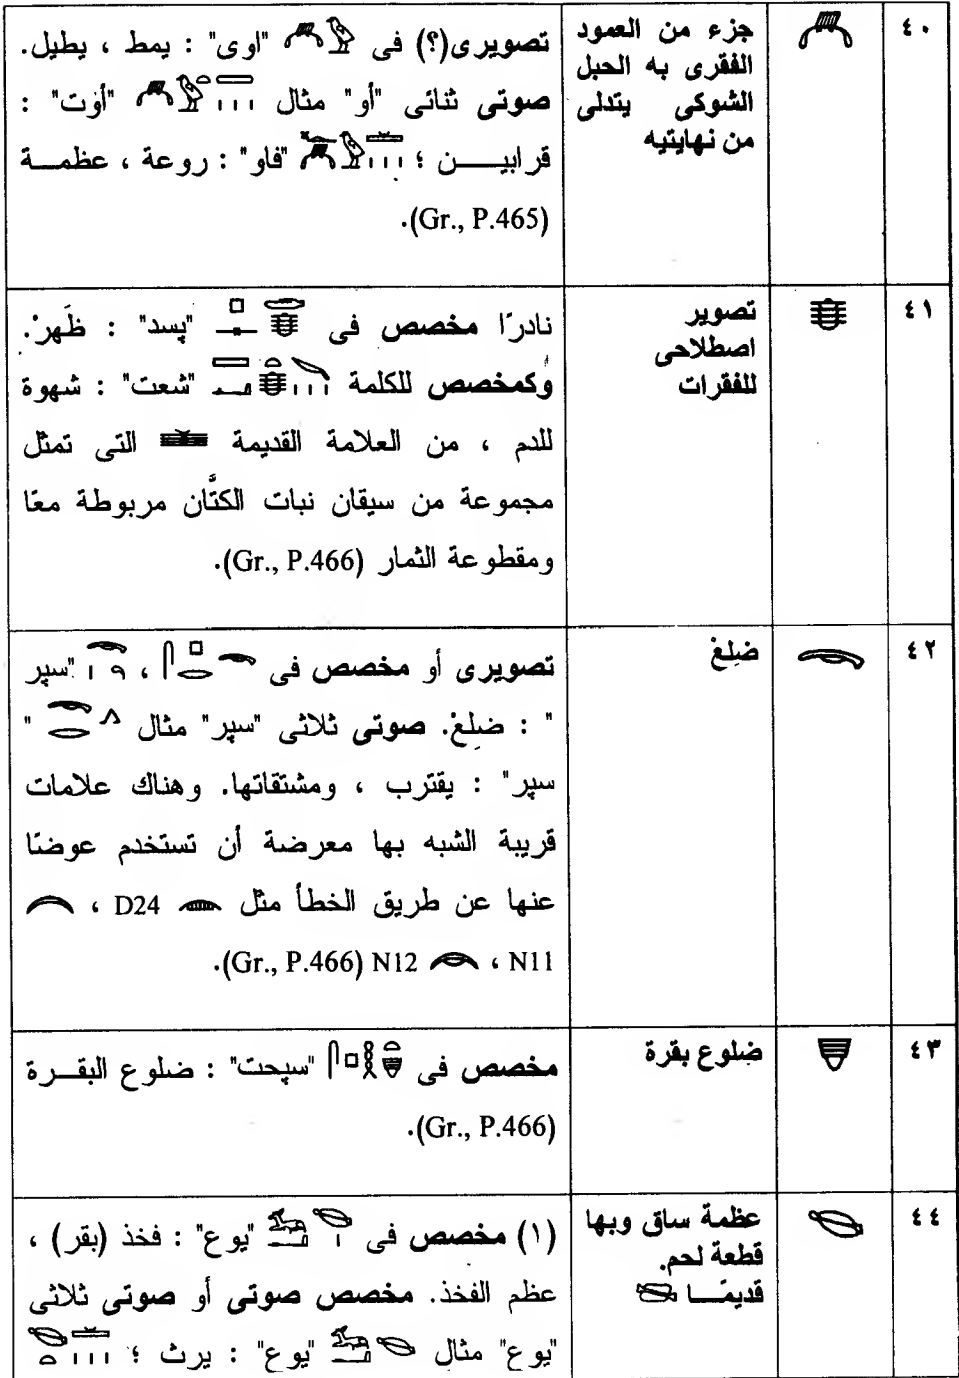 ٤٠
جزء من العمود
الفقرى به الحبل
الشوكى يتدلى
من نهايتيه
تصويرى(؟) فى "اوى" : يمط ، يطيل.
صوتى ثنائى "أو" مثال "أوت" :
قرابيــــن ؛ "فاو" : روعة ، عظمــة
(Gr., P.465).
٤١
تصوير
اصطلاحى
للفقرات
نادرًا مخصص فى "پسد" : ظَهرْ.
وكمخصص للكلمة "شعت" : شهوة
للدم ، من العلامة القديمة التى تمثل
مجموعة من سيقان نبات الكتَّان مربوطة معًا
ومقطوعة الثمار (Gr., P.466).
٤٢
ضلِعْ
تصويرى أو مخصص فى ، "سپر
" : ضلِعْ. صوتى ثلاثى "سپر" مثال "
سپر" : يقترب ، ومشتقاتها. وهناك علامات
قريبة الشبه بها معرضة أن تستخدم عوضًا
عنها عن طريق الخطأ مثل D24 ،
N11 ، N12 (Gr., P.466).
٤٣
ضلوع بقرة
مخصص فى "سپحت" : ضلوع البقــرة
(Gr., P.466).
٤٤
عظمة ساق وبها
قطعة لحم.
قديمًــا
(١) مخصص فى "يوع" : فخذ (بقر) ،
عظم الفخذ. مخصص صوتى أو صوتى ثلاثى
"يوع" مثال "يوع" : يرث ؛